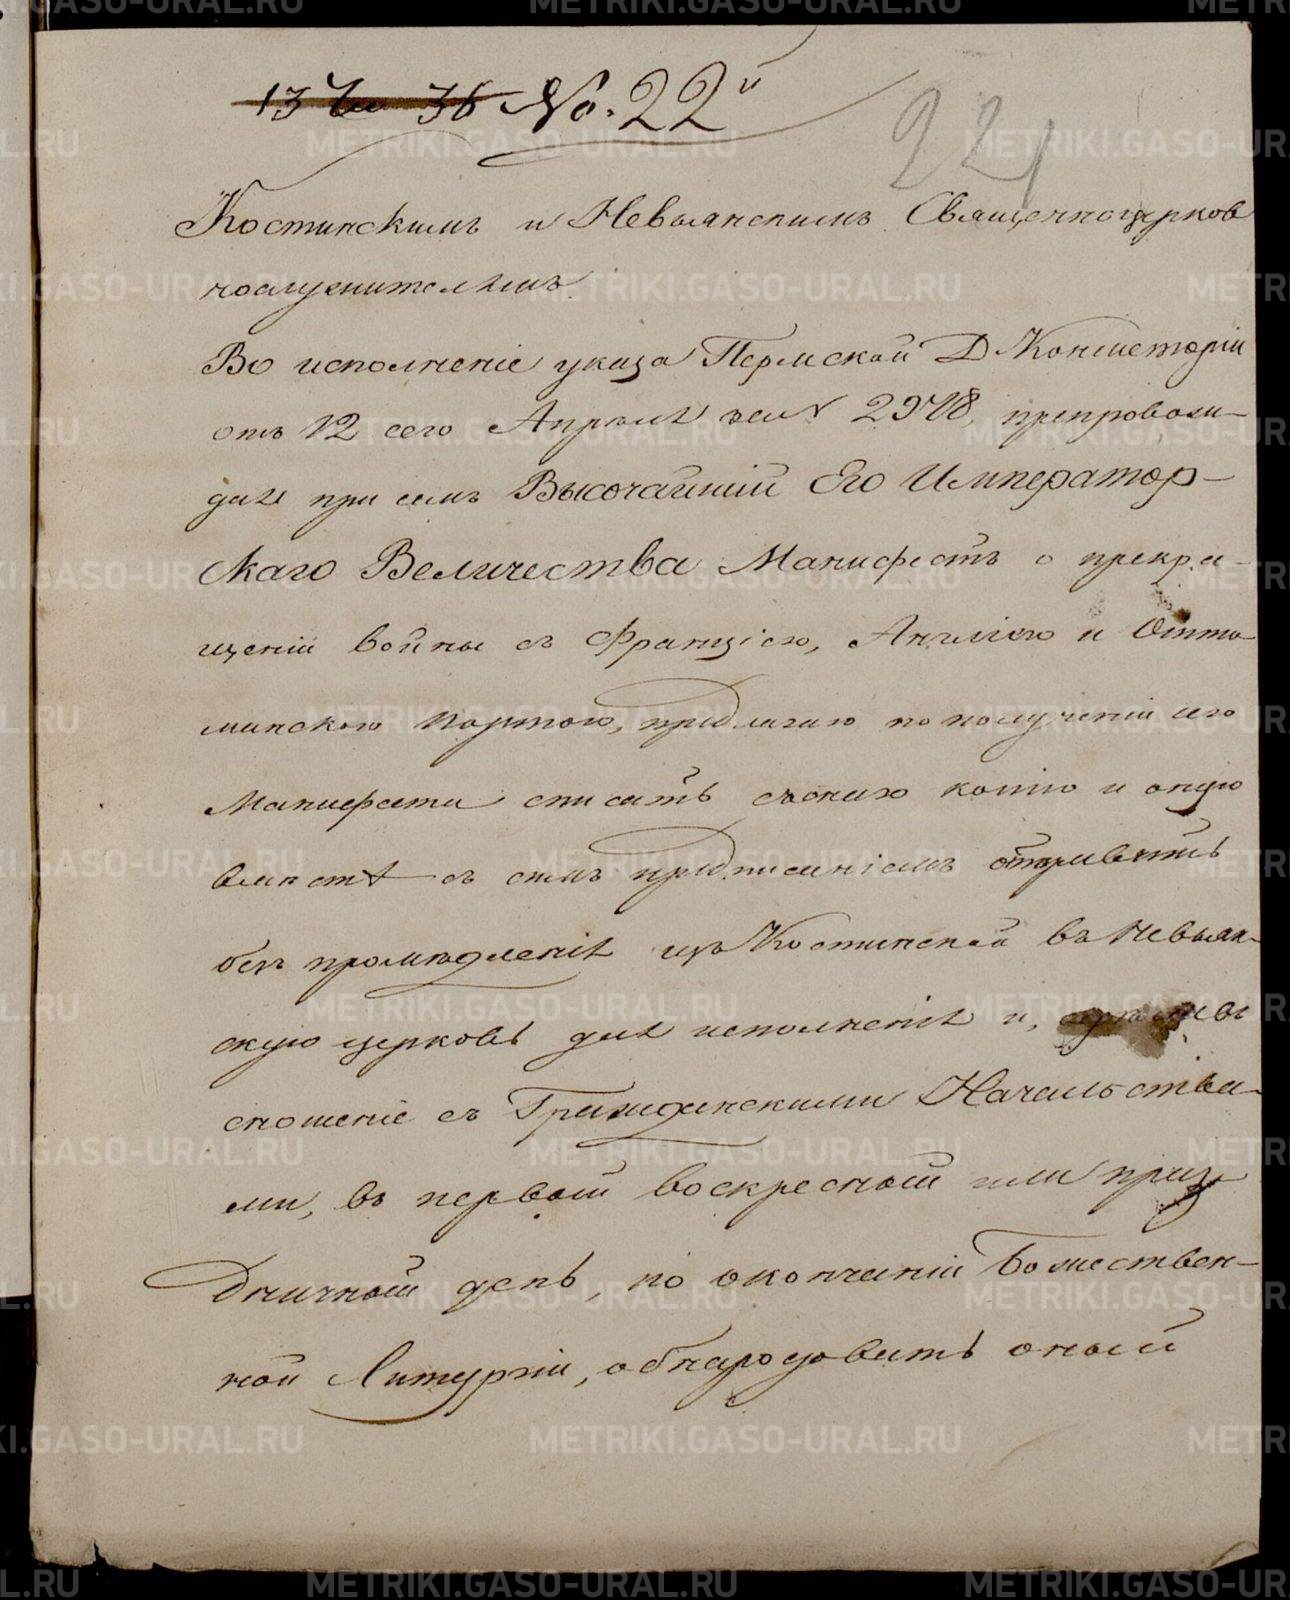 No. 22й
22
Костинскимъ и Невьянскимъ Священноцерков
нослужителямъ.
Во исполненіе указа Пермской Д Консисторіи
отъ 12 сего Апрѣля за № 2978, препровож
дая при семъ Высочайшій Его Император-
скаго Величества Манифестъ о прекра-
щеніи войны съ Франціею, Англіею и Отто
манскою портою, предлагаю по полученіи сего
Манифеста списать съ онаго копію и оную
вмѣстѣ съ симъ предписаніемъ отправить
безъ промедленія изъ Костинской въ Невьян-
скую церковь для исполненія и, сдѣлавъ
сношеніе съ Гражданскими Начальства-
ми, въ первый воскресный или праз
дничный день, по окончаніи Божествен-
ной Литургіи, обнародовать оный
METRIKI.GASO-URAL.RU